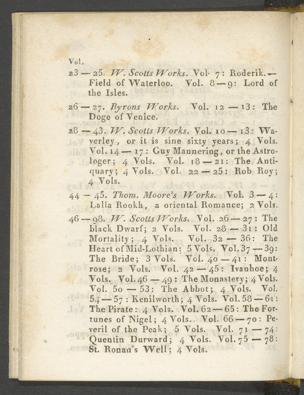 Vol.
23 — 25. W. Scotts Works. Vol. 7: Roderik. —
Field of Waterloo. Vol. 8 — 9: Lord of
the Isles.
26 — 27. Byrons Works. Vol. 12 — 13: The
Doge of Venice.
28 — 43. W. Scotts Works. Vol. 10 — 13: Wa-
verley, or it is sine sixty years; 4 Vols.
Vol. 14 — 17: Guy Mannering, or the Astro-
loger; 4 Vols. Vol. 18 — 21: The Anti-
quary; 4 Vols. Vol. 22 — 25: Rob Roy;
4 Vols.
44 — 45. Thom. Moore's Works. Vol. 3 — 4:
Lalla Rookh, a oriental Romance; 2 Vols.
46 — 98. W. Scotts Works. Vol. 26 — 27: The
black Dwarf; 2 Vols. Vol. 28 — 31: Old
Mortality; 4 Vols. Vol. 32 — 36: The
Heart of Mid-Lothian; 5 Vols. Vol. 37 — 39:
The Bride; 3 Vols. Vol. 40 — 41: Mont-
rose; 2 Vols. Vol. 42 — 45: Ivanhoe; 4
Vols. Vol. 46 — 49: The Monastery; 4 Vols.
Vol. 50 — 53: The Abbot; 4 Vols. Vol.
54 — 57: Kenilworth; 4 Vols. Vol. 58 — 61:
The Pirate: 4 Vols. Vol. 62 — 65: The For-
tunes of Nigel; 4 Vols. Vol. 66 — 70: Pe-
veril of the Peak; 5 Vols. Vol. 71 — 74:
Quentin Durward; 4 Vols. Vol. 75 — 78:
St. Ronan's Well; 4 Vols.